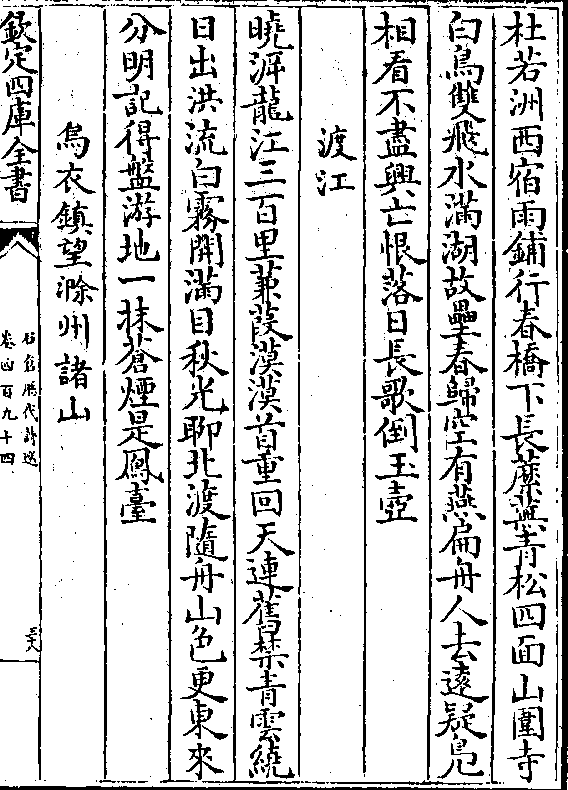 杜若洲西宿雨鋪行春橋下長蘼蕪青松四面山圍寺
白鳥雙飛水滿湖故壘春歸空有燕扁舟人去遠疑鳬
相看不盡興亡恨落日長歌倒玉壺
渡江
曉涉龍江三百里蒹葭漠漠首重回天連舊禁青雲繞
日出洪流白霧開滿目秋光聊北渡隨舟山色更東來
分明記得盤游地一抹蒼煙是鳳臺
烏衣鎮望滁州諸山
欽定四庫全書
石倉歷代詩選
卷四百九十四
三六